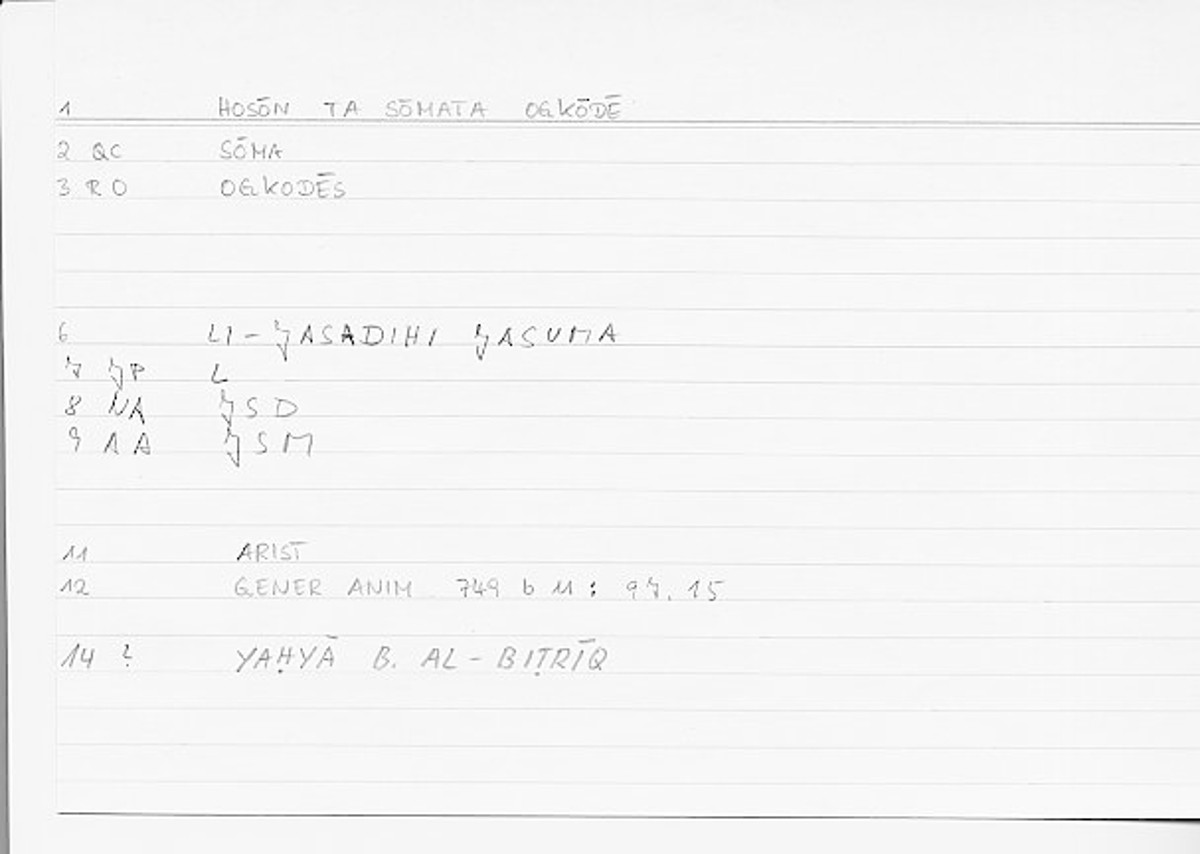 1 HOSŌN TA SŌMATA OGKŌDĒ
2 QC SŌMA
3 RO OGKODĒS
6 LI-JASADIHI JASUMA
7 JP L
8 NA JSD
9 AA JSM
11 ARIST
12 GENER ANIM 749 b 11: 97.15
14 ? YAḤYĀ B. AL-BIṬRĪQ